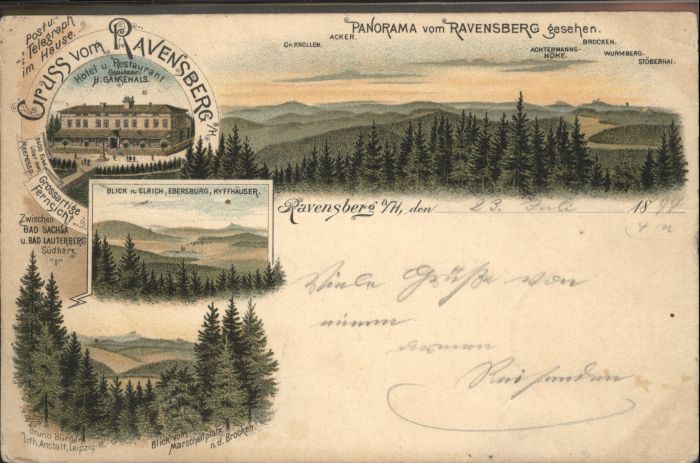 Post u.
Telegraph
im Hause.
Gruss vom Ravensberg a/H
Hotel u. Restaurant
Besitzer:
H. GÄNSEHALS.
über dem
Meeressp.
Grossartige
Fernsicht.
Zwischen
BAD SACHSA
u. BAD LAUTERBERG
Südharz
PANORAMA vom RAVENSBERG gesehen.
ACKER.
Gr. KNOLLEN.
BROCKEN.
ACHTERMANNS-
HÖHE.
WURMBERG.
STÖBERHAI.
BLICK n. ELRICH, EBERSBURG, KYFFHÄUSER.
Ravensberg a/H, den 23. Juli 1897
Viele Grüße von
einem
armen
Reisenden
Bruno Bürger
Lith. Anstalt, Leipzig-R.
Blick vom
Marschallplatz
n. d. Brocken.